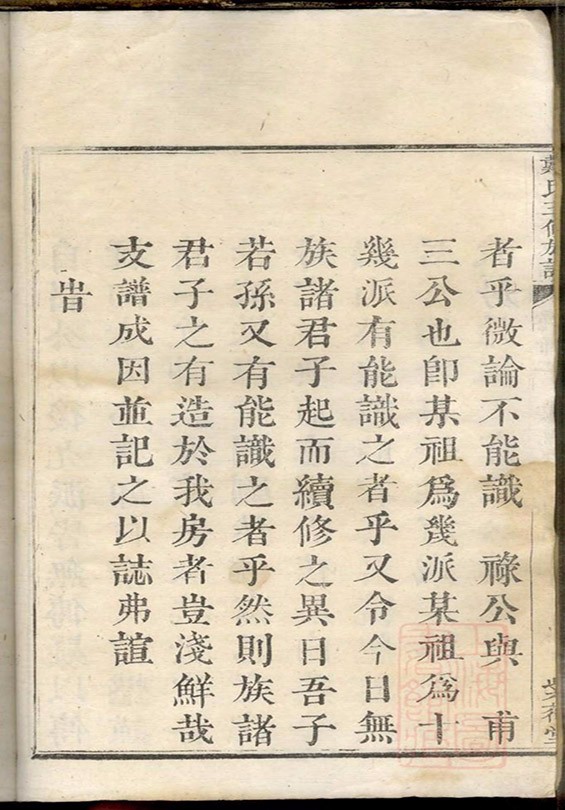 者乎微論不能識　祿公與　甫
三公也卽某祖爲幾派某祖爲十
幾派有能識之者乎又令今日無
族諸君子起而續修之異日吾子
若孫又有能識之者乎然則族諸
君子之有造於我房者豈淺鮮哉
支譜成因並記之以誌弗諠
旹